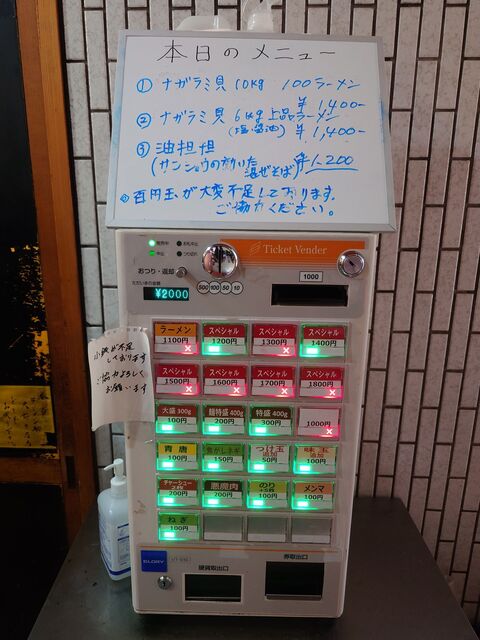 本日のメニュー
① ナガラミ貝 10kg 100ラーメン
¥1,400-
② ナガラミ貝 6kg 上品ラーメン
(塩・醤油) ¥1,400-
③ 油担担
(サンショウの効いた混ぜそば) ¥1,200
百円玉が大変不足して下ります。
ご協力ください。
Ticket Vender
発売中
お札中止
中止
つり切れ
おつり・返却
1000
ただいまの金額
¥2000
500 100 50 10
小銭が不足
しております
ご協力よろしく
お願います
ラーメン
1100円
スペシャル
1200円
スペシャル
1300円
スペシャル
1400円
スペシャル
1500円
スペシャル
1600円
スペシャル
1700円
スペシャル
1800円
大盛 300g
100円
麺特盛 400g
200円
特盛 400g
300円
1000円
青唐
100円
焦がしネギ
150円
つけ玉
追加
50円
味玉
追加
100円
チャーシュー
2枚
200円
悪魔肉
200円
のり
100円
メンマ
100円
ねぎ
100円
GLORY
硬貨取出口
券取出口